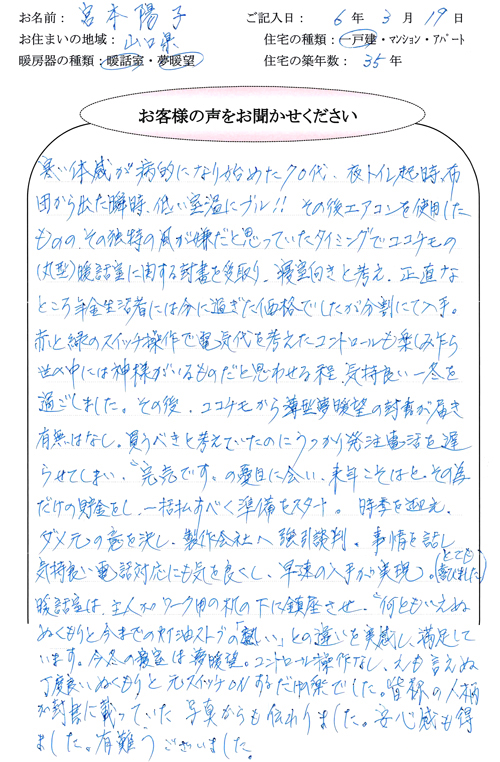 お名前： 宮本陽子 ご記入日： 6 年 3 月 19 日
お住まいの地域： 山口県 住宅の種類：一戸建・マンション・アパート
暖房器の種類：暖話室・夢暖望 住宅の築年数： 35 年
お客様の声をお聞かせください
寒い体感が病的になり始めた70代、夜トイレ起時、布
団から出た瞬時、低い室温にブル!! その後エアコンを使用した
ものの、その独特の風が嫌だと思っていたタイミングでココチモの
(丸型)暖話室に関する封書を受取り、寝室向きと考え、正直な
ところ年金生活者には分に過ぎた価格でしたが分割にて入手。
赤と緑のスイッチ操作で電気代を考えたコントロールも楽しみ乍ら
世の中には神様がいるものだと思わせる程、気持良い一冬を
過ごしました。その後、ココチモから薄型夢暖望の封書が届き
有無はなし。買うべきと考えていたのにうっかり発注電話を遅
らせてしまい、〝完売です〟の憂目に会い、来年こそはと、その為
だけの貯金をし、一括払すべく準備をスタート。 時季を迎え、
ダメ元の意を決し、製作会社へ強引談判。 事情を話し
気持良い電話対応にも気を良くし、早速の入手が実現。(とても喜びました)
暖話室は、主人がワーク用の机の下に鎮座させ、〝何ともいえぬ
ぬくもりと今までの灯油ストブの「熱い」との違いを実感し、満足して
います。今冬の寝室は夢暖望。コントロール操作なし、えも言えぬ
丁度良いぬくもりと元スイッチONするだけ楽でした。皆様の人柄
が封書に載っていた 写真からも伝わりました。安心感も得
ました。有難うございました。